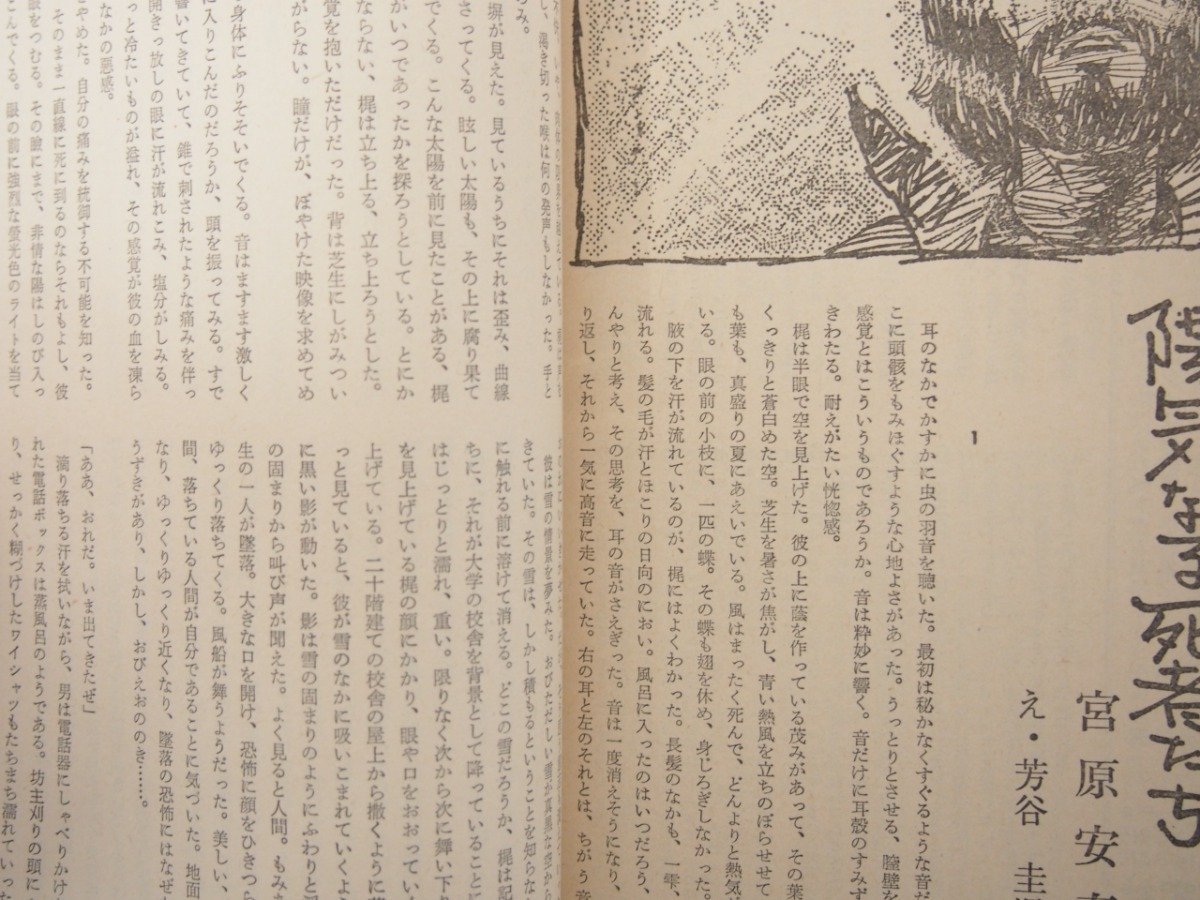 陽気なる死者たち
宮原安
え・芳谷 圭
1
耳のなかでかすかに虫の羽音を聴いた。最初は秘かなくすぐるような音だ
こに頭骸をもみほぐすような心地よさがあった。うっとりとさせる、膣壁を
感覚とはこういうものであろうか。音は粋妙に響く。音だけに耳殻のすみず
きわたる。耐えがたい恍惚感。
梶は半眼で空を見上げた。彼の上に蔭を作っている茂みがあって、その葉
くっきりと蒼白めた空。芝生を暑さが焦がし、青い熱風を立ちのぼらせて
も葉も、真盛りの夏にあえいでいる。風はまったく死んで、どんよりと熱気が
いる。眼の前の小枝に、一匹の蝶。その蝶も翅を休め、身じろぎしなかった。
腋の下を汗が流れているのが、梶にはよくわかった。長髪のなかも、一雫、
流れる。髪の毛が汗とほこりの日向のにおい。風呂に入ったのはいつだろう、
んやりと考え、その思考を、耳の音がさえぎった。音は一度消えそうになり、
り返し、それから一気に高音に走っていた。右の耳と左のそれとは、ちがう音
し、渇き切った喉は何の発声もしなかった。手と
み。
塀が見えた。見ているうちにそれは歪み、曲線
さってくる。眩しい太陽も、その上に腐り果て
でくる。こんな太陽を前に見たことがある、梶
がいつであったかを探ろうとしている。とにか
ならない、梶は立ち上る、立ち上ろうとした。
覚を抱いただけだった。背は芝生にしがみつい
がらない。瞳だけが、ぼやけた映像を求めてめ
身体にふりそそいでくる。音はますます激しく
に入りこんだのだろうか、頭を振ってみる。すで
響いてきていて、錐で刺されたような痛みを伴っ
開きっ放しの眼に汗が流れこみ、塩分がしみる。
っと冷たいものが溢れ、その感覚が彼の血を凍ら
なかの悪感。
やめた。自分の痛みを統御する不可能を知った。
そのまま一直線に死に到るのならそれもよし、彼
眼をつむる。その瞼にまで、非情な陽はしのび入っ
こんでくる。眼の前に強烈な螢光色のライトを当て
彼は雪の情景を夢みた。おびただしい雪が真黒な空から
きていた。その雪は、しかし積もるということを知らな
に触れる前に溶けて消える。どこの雪だろうか、梶は記
ちに、それが大学の校舎を背景として降っていることに
はじっとりと濡れ、重い。限りなく次から次に舞い下
を見上げている梶の顔にかかり、眼や口をおおってい
上げている。二十階建ての校舎の屋上から撒くように
っと見ていると、彼が雪のなかに吸いこまれていくよ
に黒い影が動いた。影は雪の固まりのようにふわりと
の固まりから叫び声が聞えた。よく見ると人間。もみ
生の一人が墜落。大きな口を開け、恐怖に顔をひきつら
ゆっくり落ちてくる。風船が舞うようだった。美しい、
間、落ちている人間が自分であることに気づいた。地面
なり、ゆっくりゆっくり近くなり、墜落の恐怖にはなぜ
うずきがあり、しかし、おびえおののき……。
「ああ、おれだ。いま出てきたぜ」
滴り落ちる汗を拭いながら、男は電話器にしゃべりかけ
れた電話ボックスは蒸風呂のようである。坊主刈りの頭に
り、せっかく糊づけしたワイシャツもたちまち濡れていった